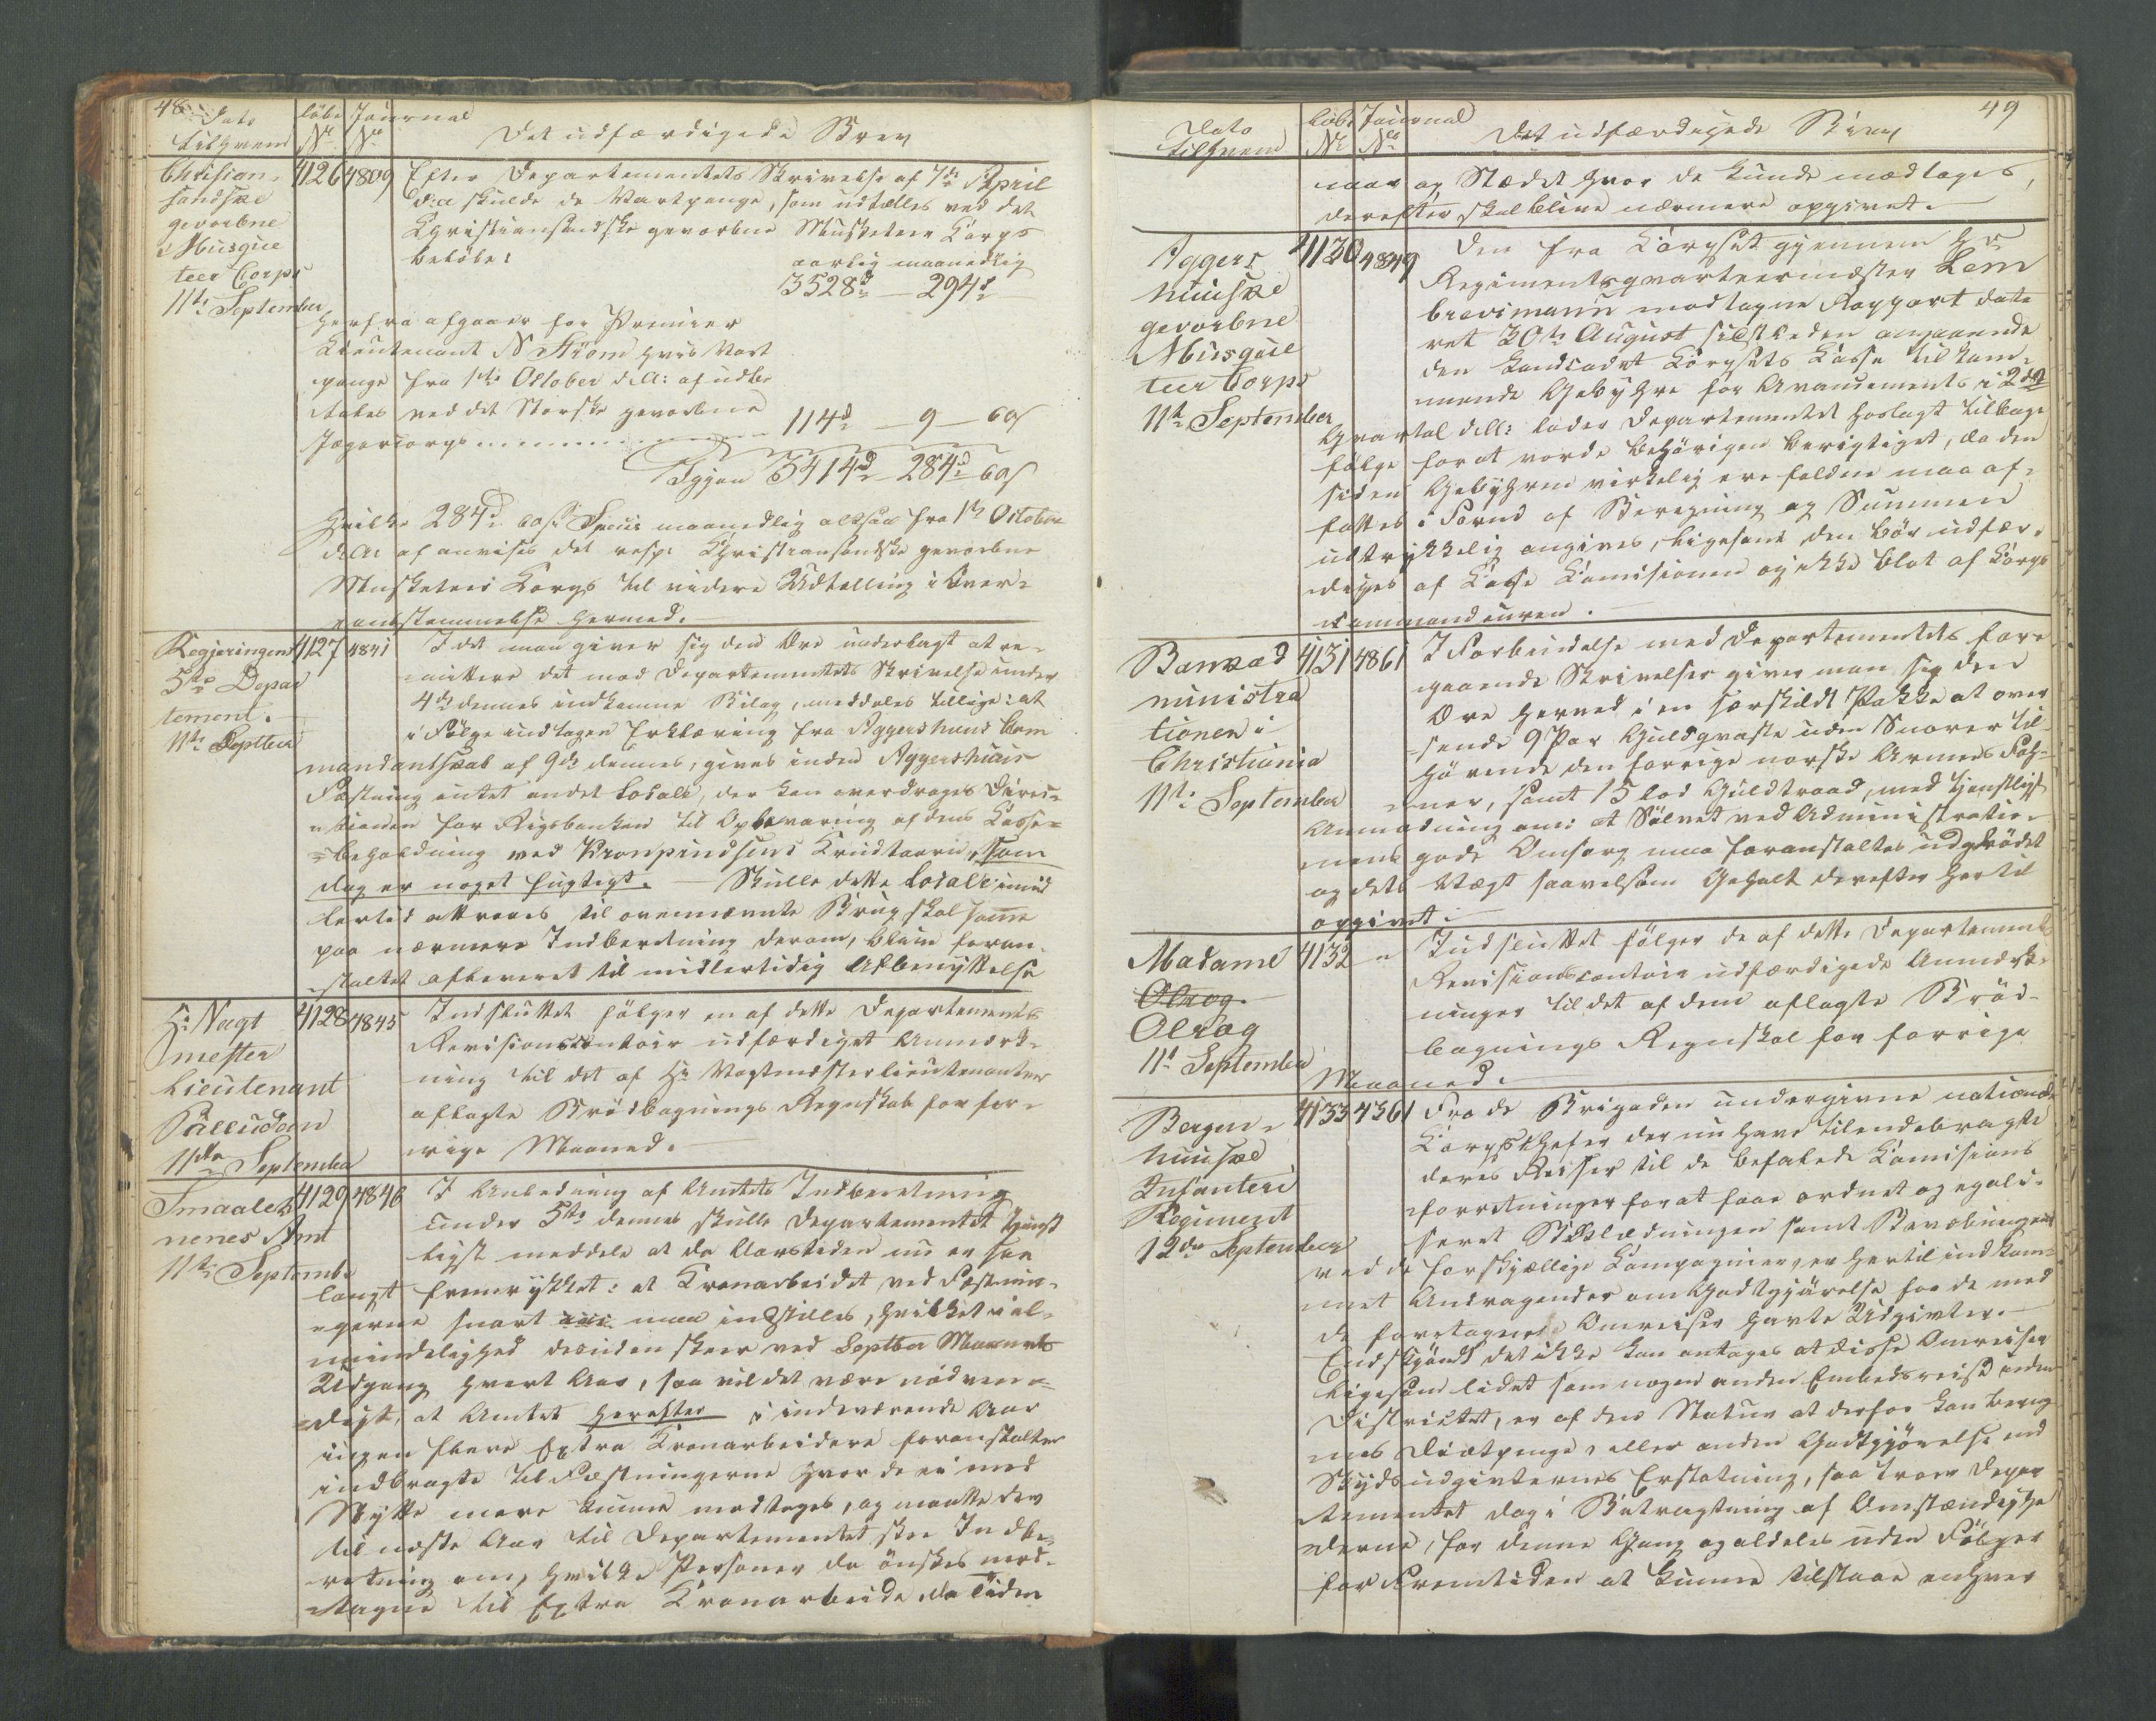 48
Dato
til hvem
löbe
No
Journal
No
Det udfærdigede Brev
Chrisian-
sandske
gevorbne
Musque
teer Corps
11te September
4126 4809 Efter Departementets Skrivelse af 7de April
d: a skulde de Vartpenge, som udtælles ved det
Christiansandske gevorbne Musketeer Corps
belöbe: aarlig maanedlig
3528d — 294d
herfra afgaaer for Premier
Lieutenant N Strøm hvis Vart
penge fra 1ste October d. A: af udbe
tales ved det Norske gevorbne
Jægercorps 114d — 9 — 60s
Igjen 3414d — 284d 60s
Hvilke 284d 60s Specie maanedlig altsaa fra 1te October
d: A: af anvises det resp: Christiansandske gevorbne
Musketeer Corps til videre Udtælling i Over-
eensstemmelse hermed.
Regjeringens
5te Depar
tement.
11te Septbr
4127 4841 I det man giver sig den Ære underlagt at re-
mittere det med Departementets Skrivelse under
4de dennes indkomne Bilag, meddeles tillige: at
i Følge indtagen Erklæring fra Aggershuus Com
mandantskab af 9de dennes, gives inden Aggershuus
Fæstning intet andet Locale, der kan overdrages Direc-
tionen for Rigsbanken til Opbevaring af dens Casse-
beholdning ved Kronprindsens Krudttaarn, som
dog er noget fugtigt. Skulle dette Locale imid
lertid attraaes til ovennævnte Brug skal samme
paa nærmere Indberetning derom, blive foran-
staltet afleveret til midlertidig Afbenyttelse
Hr Vagt
mester
Lieutenant
Palludan
11te September
4128 4845 Indsluttet følger en af dette Departements
Revisionscontoir udfærdiget Anmærk-
ning til det af Hr Vagtmesterlieutenanten
aflagte Brödbagnings Regnskab for for-
rige Maaned.
Smaaleh-
nenes Amt
11te Septembr
4129 4846 I Anledning af Amtets Indberetning
under 5te dennes skulle Departementet tjenst
ligst meddele at da Aarstiden nu er saa
langt fremrykket: at Kronarbeidet ved Fæstnin-
gerne snart maa indstilles, hvilket i al-
mindelighed desuden skeer ved Septbr Maaneds
Udgang hvert Aar, saa vil det være nödven-
digt, at Amtet herefter i indeværende Aar
ingen flere Extra Kronarbeidere foranstalter
indbragte til Fæstningerne hvor de ei med
Nytte mere kunne modtages, og maatte der
til næste Aar til Departementet skee Indbe-
retning om, hvilke Personer der önskes mod-
tagne til Extra Kronarbeide, da Tiden
49
Dato
til hvem
Löbe
No
Journal
No
Det udfærdigede Brev
naar og Stædet hvor de kunde modtages,
derefter skal blive nærmere opgivet.
Aggers
huuske
gevorbne
Musque
teer Corps
11te September
4130 4849 Den fra Corpset gjennem Hr
Regimentsqvarteermester Lem
brevimann modtagne Rapport date
ret 30te August sidstleden angaaende
den Landcadet Corpsets Casse tilkom-
mende Gebyhre for Avancements i 2det
Qvartal d.A: lader Departementet hoslagt tilbage
følge for at vorde behörigen berigtiget, da den
siden Gebyhren virkelig ere faldne maa af-
fattes i Form af Beregning og Summen
udtrykkelig angives, ligesom den bör udfær-
diges af Casse Comisionen og ikke blot af Corps
commandeuren.
Bankad
ministra
tionen i
Christiania
11te September
4131 4861 I Forbindelse med Departementets fore
gaaende Skrivelser giver man sig den
Ære herved i en særskildt Pakke at over
sende 9 Par Guldqvaste uden Snorer til
hörende den forrige norske Armees Fah-
ner, samt 15 lod Guldtraad, med tjenstligst
Anmodning om: at Sölvet ved Administratio-
nens gode Omsorg maa foranstaltes udglödet
og dets Vægt saavelsom Gehalt derefter hertil
opgivet.
Madame
Olrog
Olrog
11te September
4132 " Indsluttet følger de af dette Departements
Revisionscontoir udfærdigede Anmærk-
ninger til det af dem aflagte Bröd-
bagnings Regnskab for forrige
Maaned.
Bergen-
huuske
Infanteri
Regiment
12te September
4133 4361 Fra de Brigaden undergivne nationale
Corpschefer der nu have tilendebragte
deres Reiser til de befalede Comisions
forretninger for at faae ordnet og egali-
seret Beklædningen samt Bevæbningen
ved de forskjællige Compagnier, er hertil indkom-
met Andragender om Godtgjörelse for de med
de foretagne Omreiser havte Udgivter.
Endskjöndt det ikke kan antages at disse Omreiser
ligesaa lidet som nogen anden Embedsreise inden
Districtet, er af den Natur at derfor kan bereg
nes Diætpenge eller anden Godtgjörelse end
Skydsudgivternes Erstatning, saa troer Depar
tementet dog i Betragtning af Omstændighe
derne, for denne Gang og aldeles uden Følger
for Fremtiden at kunne tilstaae enhver